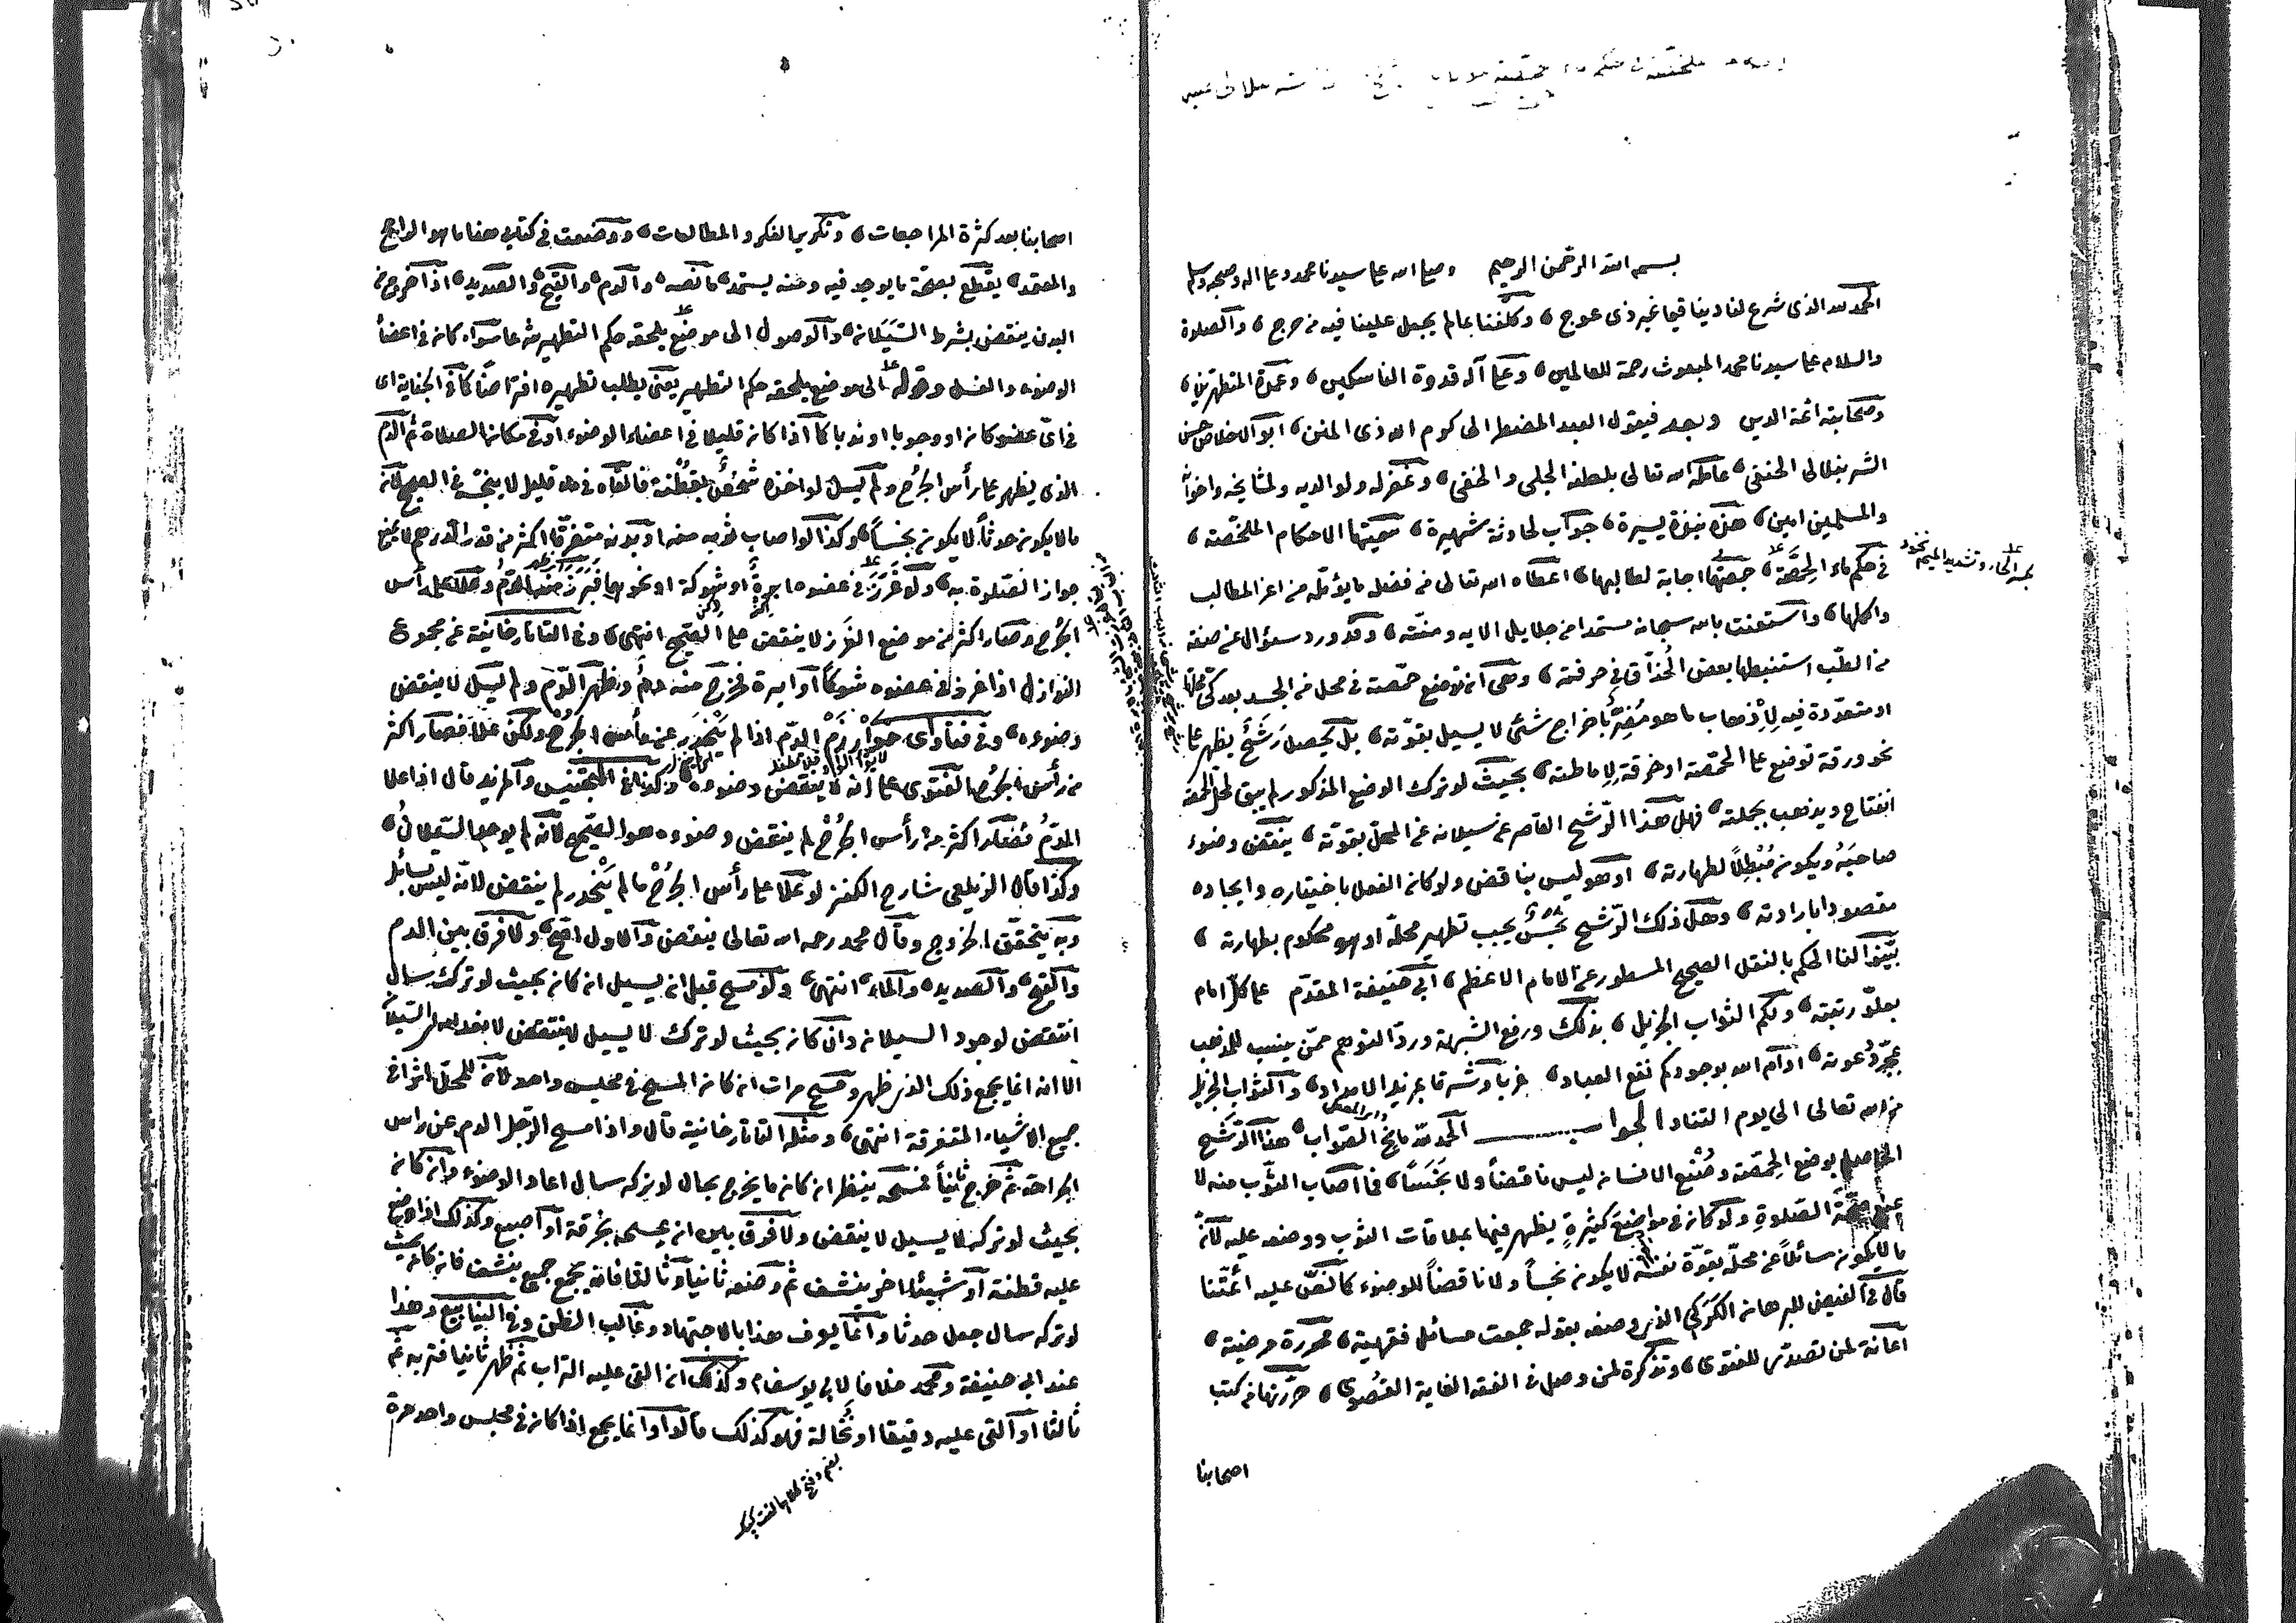 بسم الله الرحمن الرحيم وصلى الله على سيدنا محمد وعلى اله وصحبه وسلم
الحمد لله الذى شرع لنا دينا قيما غير ذى عوج وكلفنا بما لم يجعل علينا فيه من حرج والصلوة
والسلام على سيدنا محمد المبعوث رحمة للعالمين وعلى آله قدوة الناسكين وعمدة المتطهرين
وصحابته ائمة الدين وبعد فيقول العبد المضطر الى كرم الله ذى المنن ابو الاخلاص حسن
الشرنبلالى الحنفى عامله الله تعالى بلطفه الجلى والخفى وغفر له ولوالديه ولمشايخه واخوانه
والمسلمين امين هذه نبذة يسيرة جواب لحادثة شهيرة سميتها الاحكام الملخصة
فى حكم ماء الحِمَّصة جمعتها اجابة لطالبها اعطاه الله تعالى من فضله ما يؤمله من اعز المطالب
بكسر الحاء وتشديد الميم
واكملها واستعنت بالله سبحانه مستمدا من جلايل الايه ومننه وقد ورد سؤال عن صنعة
من الطب استنبطها بعض الحُذّاق فى حرفته وهى ان توضع حمصة فى محل من الجسد بعد كى محلها
او متعددة فيه لاذهاب ما هو مُضِرّ باخراج شئ لا يسيل بقوته بل يحصل رَشَحٌ يظهر على
نحو ورقة توضع على الحمصة او خرقة لاماطته بحيث لو ترك الوضع المذكور لم يبق لمحل الحمصة
انفتاح ويذهب بجملته فهل هذا الرشح القاصر عن سيلانه عن المحل بقوته ينقض وضوء
صاحبَهُ ويكون مُبْطِلاً لطهارته او هو ليس بناقض ولو كان الفعل باختياره وايجاده
مقصودا بارادته وهل ذلك الرشح نجس يجب تطهير محله او هو محكوم بطهارته
بيّنوا لنا الحكم بالنقل الصحيح المسطور عن الامام الاعظم ابى حنيفة المقدم على كل امام
بعلوّ رتبته ولكم الثواب الجزيل بذلك ورفع الشبهة وردّ التوهم عمّن ينسب للمذهب
بمجرد دعوته ادام الله بوجودكم نفع العباد والثواب الجزيل
من الله تعالى الى يوم التناد الجواب الحمد لله مانح الصواب هذا الرّشَح
الحاصل بوضع الحمّصة وصُنْع الانسان ليس ناقضاً ولا نَجَسَاً فما اصاب الثوب منه لا
يمنع صحّةَ الصّلوةِ ولو كان فى مواضعَ كثيرةٍ يظهر فيها بملاقات الثوب ووضعه عليه لانه
ما لا يكون سائلاً عن محلّه بقوّة نفسه لا يكون نجساً ولا ناقضاً للوضوء كما نصّ عليه ائمّتنا
قال فى الفيض للبرهان الكَرَكى الذى وصفه بقوله جمعت مسائل فقهية محررة مرضية
اعانة لمن تصدى للفتوى وتذكرة لمن وصل فى الفقه الغاية القصوى حرّرتها من كتب
اصحابنا
اصحابنا بعد كثرة المراجعات وتكرير الفكر والمطالعات ووضعت فى كتابى هذا ما هو الراجح
والمعتمد يقطع بصحة ما يوجد فيه ومنه يستمد ما نصه والدم والقيح والصديد اذا خرج من
البدن ينقض بشرط السّيَلان والوصول الى موضع يلحقه حكم التطهير شرعا سواء كان فى اعضاء
الوضوء والغسل وقوله الى موضع يلحقه حكم التطهير يعنى يطلب تطهيره افتراضا كما فى الجنابة اى
فى اىّ عضو كان او وجوبا او ندبا كما اذا كان قليلا فى اعضاء الوضوء او فى مكان الصلاة ثم الدم
الذى يظهر على رأس الجُرح ولم يَسِل لو اخذه شخص بقُطْنة فالقاه فى ماء قليل لا ينجّسه فى الصحيح لانّه
ما لا يكون حدثاً لا يكون نجساً وكذا لو اصاب ثوبه منه او بدنه متفرقا اكثر من قدر الدرهم لا يمنع
جواز الصّلوة به ولو غَرَزَ فى عضوه ابرةً او شوكة او نحوها فبرز منه الدم وعلا على رأس
الجُرح وصار اكثر من موضع الغَرز لا ينقض على الصحيح انتهى وفى التاتارخانية عن مجموع
النوازل اذا غرز فى عضوه شوكاً او ابرة فخرج منه دم وظهر الدّم ولم يَسِل لا ينقض
وضوءه وفى فتاوى خوارزم الدّم اذا لم ينْحَدِر عن رأس الجُرْح ولكن عَلا فصار اكثر
من رأس الجُرح الفتوى على انه لا ينقض وضوءه وكذا فى المجتبى والمزيد قال اذا علا
الدّمُ فصار اكثر من رأس الجُرْح لم ينقض وضوءه هو الصّحيح لانه لم يوجد السّيَلانُ
وكذا قال الزيلعى شارح الكنز لو علا على رأس الجُرْح ما لم ينْحدر لم ينقض لانه ليس بسائل
وبه يتحقّق الخروج وقال محمد رحمه الله تعالى ينقض والاول اصح ولا فرق بين الدم
والقيح والصديد والماء انتهى ولو مسح قبل ان يسيل ان كان بحيث لو ترك سال
انتقض لوجود السيلان وان كان بحيث لو ترك لا يسيل لا ينتقض لانعدام السّيَلان
الا انه انما يجمع ذلك الذى ظهر ومسح مرات ان كان المسح فى مجلس واحد لانّ للمحلّ اثرا فى
جميع الاشياء المتفرقة انتهى ومثله التاتارخانية قال واذا مسح الرّجل الدم عن راس
الجراحة ثم خرج ثانيا فمسحه ينظر ان كان ما يخرج بحال لو تركه سال اعاد الوضوء وان كان
بحيث لو تركه لا يسيل لا ينقض ولا فرق بين ان يمسحه بخرقة او اصبع وكذلك اذا وضع
عليه قطنة او شيئا اخر ينشف ثم وضعه ثانيا وثالثا فانه يجمع جميع ينشف فان كان بحيث
لو تركه سال جعل حدثا وانما يعرف هذا بالاجتهاد وغالب الظن وفى الينابيع وهذا
عند ابى حنيفة ومحمد خلافا لابى يوسف وكذلك ان القى عليه التراب ثم ظهر ثانيا فتربه ثم
ثالثا او القى عليه دقيقا او نُخالة فهو كذلك قالوا وانما يجمع اذا كان فى مجلس واحد مرة